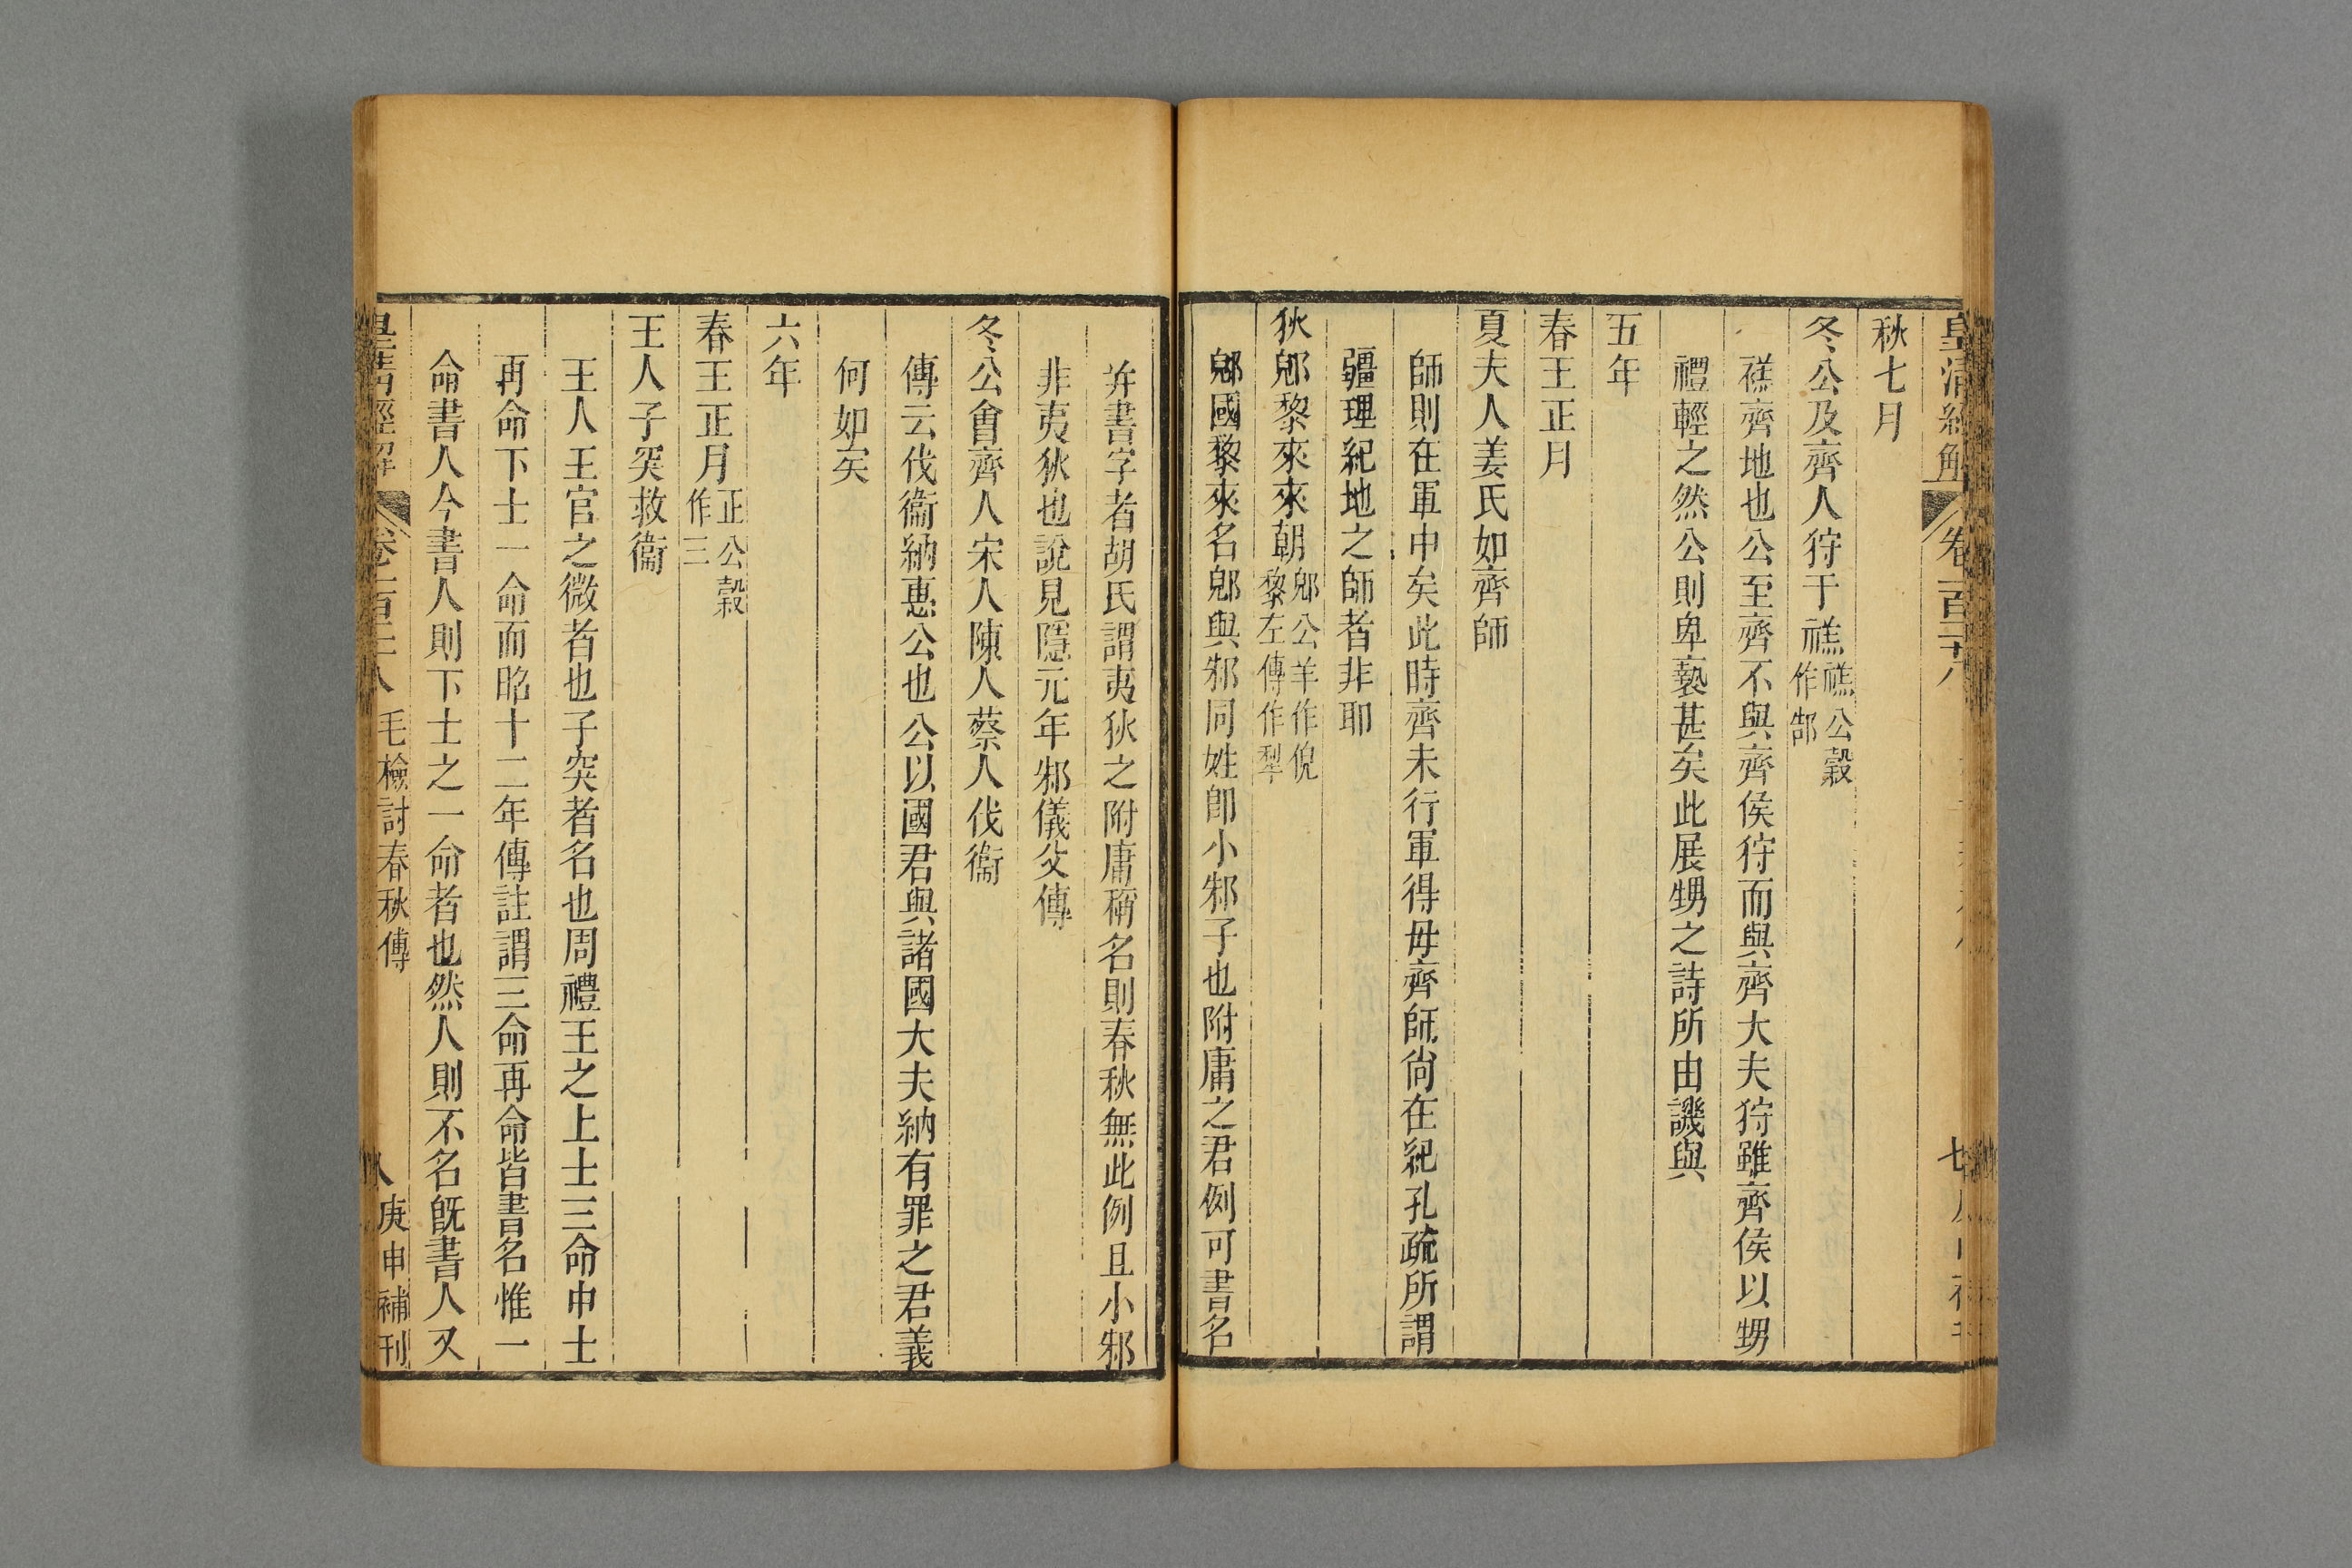 皇清經解 卷一百二十八
秋七月
冬公及齊人狩于禚禚公穀作郜
禚齊地也公至齊不與齊侯狩而與齊大夫狩雖齊侯以甥
禮輕之然公則卑褻甚矣此展甥之詩所由譏與
五年
春王正月
夏夫人姜氏如齊師
師則在軍中矣此時齊未行軍得毋齊師尙在紀孔疏所謂
疆理紀地之師者非耶
秋郳黎來來朝郳公羊作倪黎左傳作犂
郳國黎來名郳與邾同姓卽小邾子也附庸之君例可書名
竝書字者胡氏謂夷狄之附庸稱名則春秋無此例且小邾
非夷狄也說見隱元年邾儀父傳
冬公會齊人宋人陳人蔡人伐衞
傳云伐衞納惠公也公以國君與諸國大夫納有罪之君義
何如矣
六年
春王正月正公穀作三
王人子突救衞
王人王官之微者也子突者名也周禮王之上士三命中士
再命下士一命而昭十二年傳註謂三命再命皆書名惟一
命書人今書人則下士之一命者也然人則不名旣書人又
皇清經解 卷一百二十八 毛檢討春秋傳 八 庚申補刊